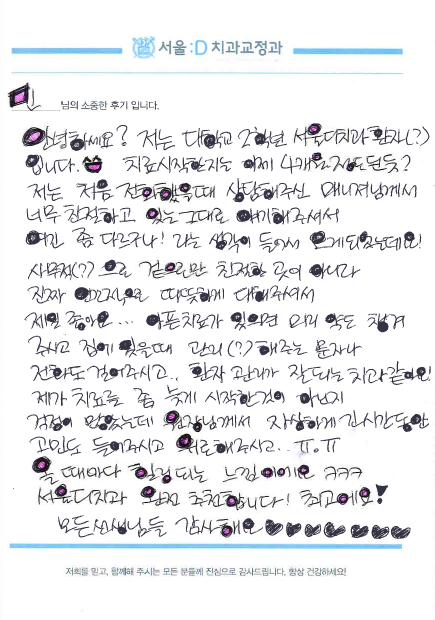 서울:D 치과교정과
님의 소중한 후기 입니다.
안녕하세요? 저는 대학교 2학년 서울디치과 환자(?)
입니다. 치료시작한지는 이제 4개월정도 됐듯?
저는 처음 전화했을때 상담해주신 매니저님께서
너무 친절하고 있는그대로 얘기해주셔서
여긴 좀 다르구나! 라는 생각이 들어서 오게되었는데요!
사무적(?)으로 겉으로만 친절한 곳이 아니라
진짜 따뜻하게 대해주셔서
제일 좋아요... 아픈치료가 있으면 미리 약도 챙겨
주시고 집에 있을때 관리(?)해주는 문자나
전화도 걸어주시고.. 환자 관리가 잘되는 치과같아요!
제가 치료를 좀 늦게 시작한것이 아닌지
걱정이 많았는데 원장님께서 자상하게 긴시간동안
고민도 들어주시고 위로해주시고.. ㅠ.ㅠ
올 때마다 힐링되는 느낌이에요 ㅋㅋㅋ
서울디치과 완전 추천합니다! 최고에요!
모든선생님들 감사해요
저희를 믿고, 함께해 주시는 모든 분들께 진심으로 감사드립니다. 항상 건강하세요!